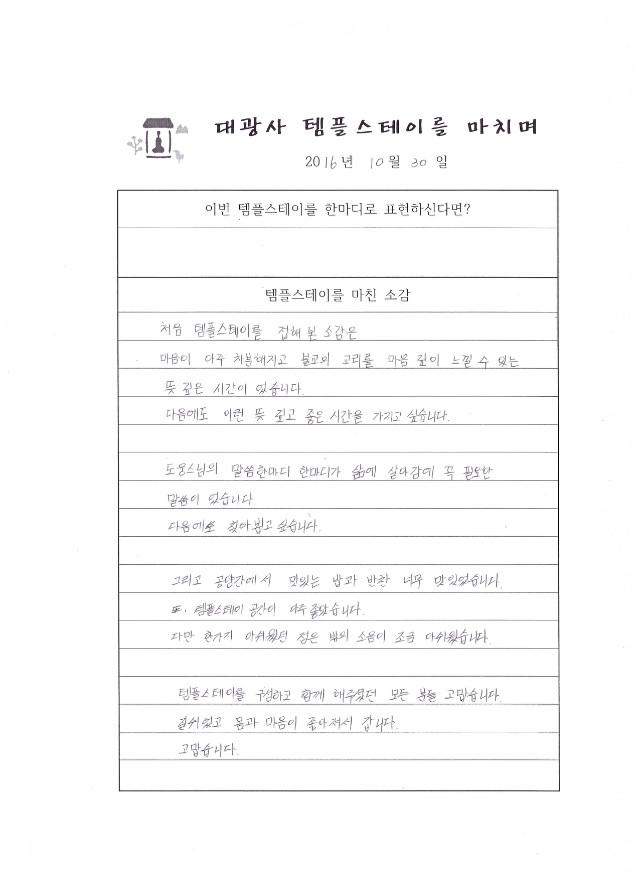 대광사 템플스테이를 마치며
2016년 10월 30일
이번 템플스테이를 한마디로 표현하신다면?
템플스테이를 마친 소감
처음 템플스테이를 접해 본 소감은
마음이 아주 차분해지고 불교의 교리를 마음 깊이 느낄 수 있는
뜻 깊은 시간이 었습니다.
다음에도 이런 뜻 깊고 좋은 시간을 가지고 싶습니다.
도웅스님의 말씀한마디 한마디가 삶에 살아감에 꼭 필요한
말씀이 었습니다
다음에도 찾아뵙고 싶습니다.
그리고 공양간에서 맛있는 밥과 반찬 너무 맛있었습니다.
또, 템플스테이 공간이 아주 좋았습니다.
다만 한가지 아쉬웠던 점은 밖의 소음이 조금 아쉬웠습니다.
템플스테이를 구성하고 함께 해주셨던 모든 분들 고맙습니다.
잘쉬었고 몸과 마음이 좋아져서 갑니다.
고맙습니다.